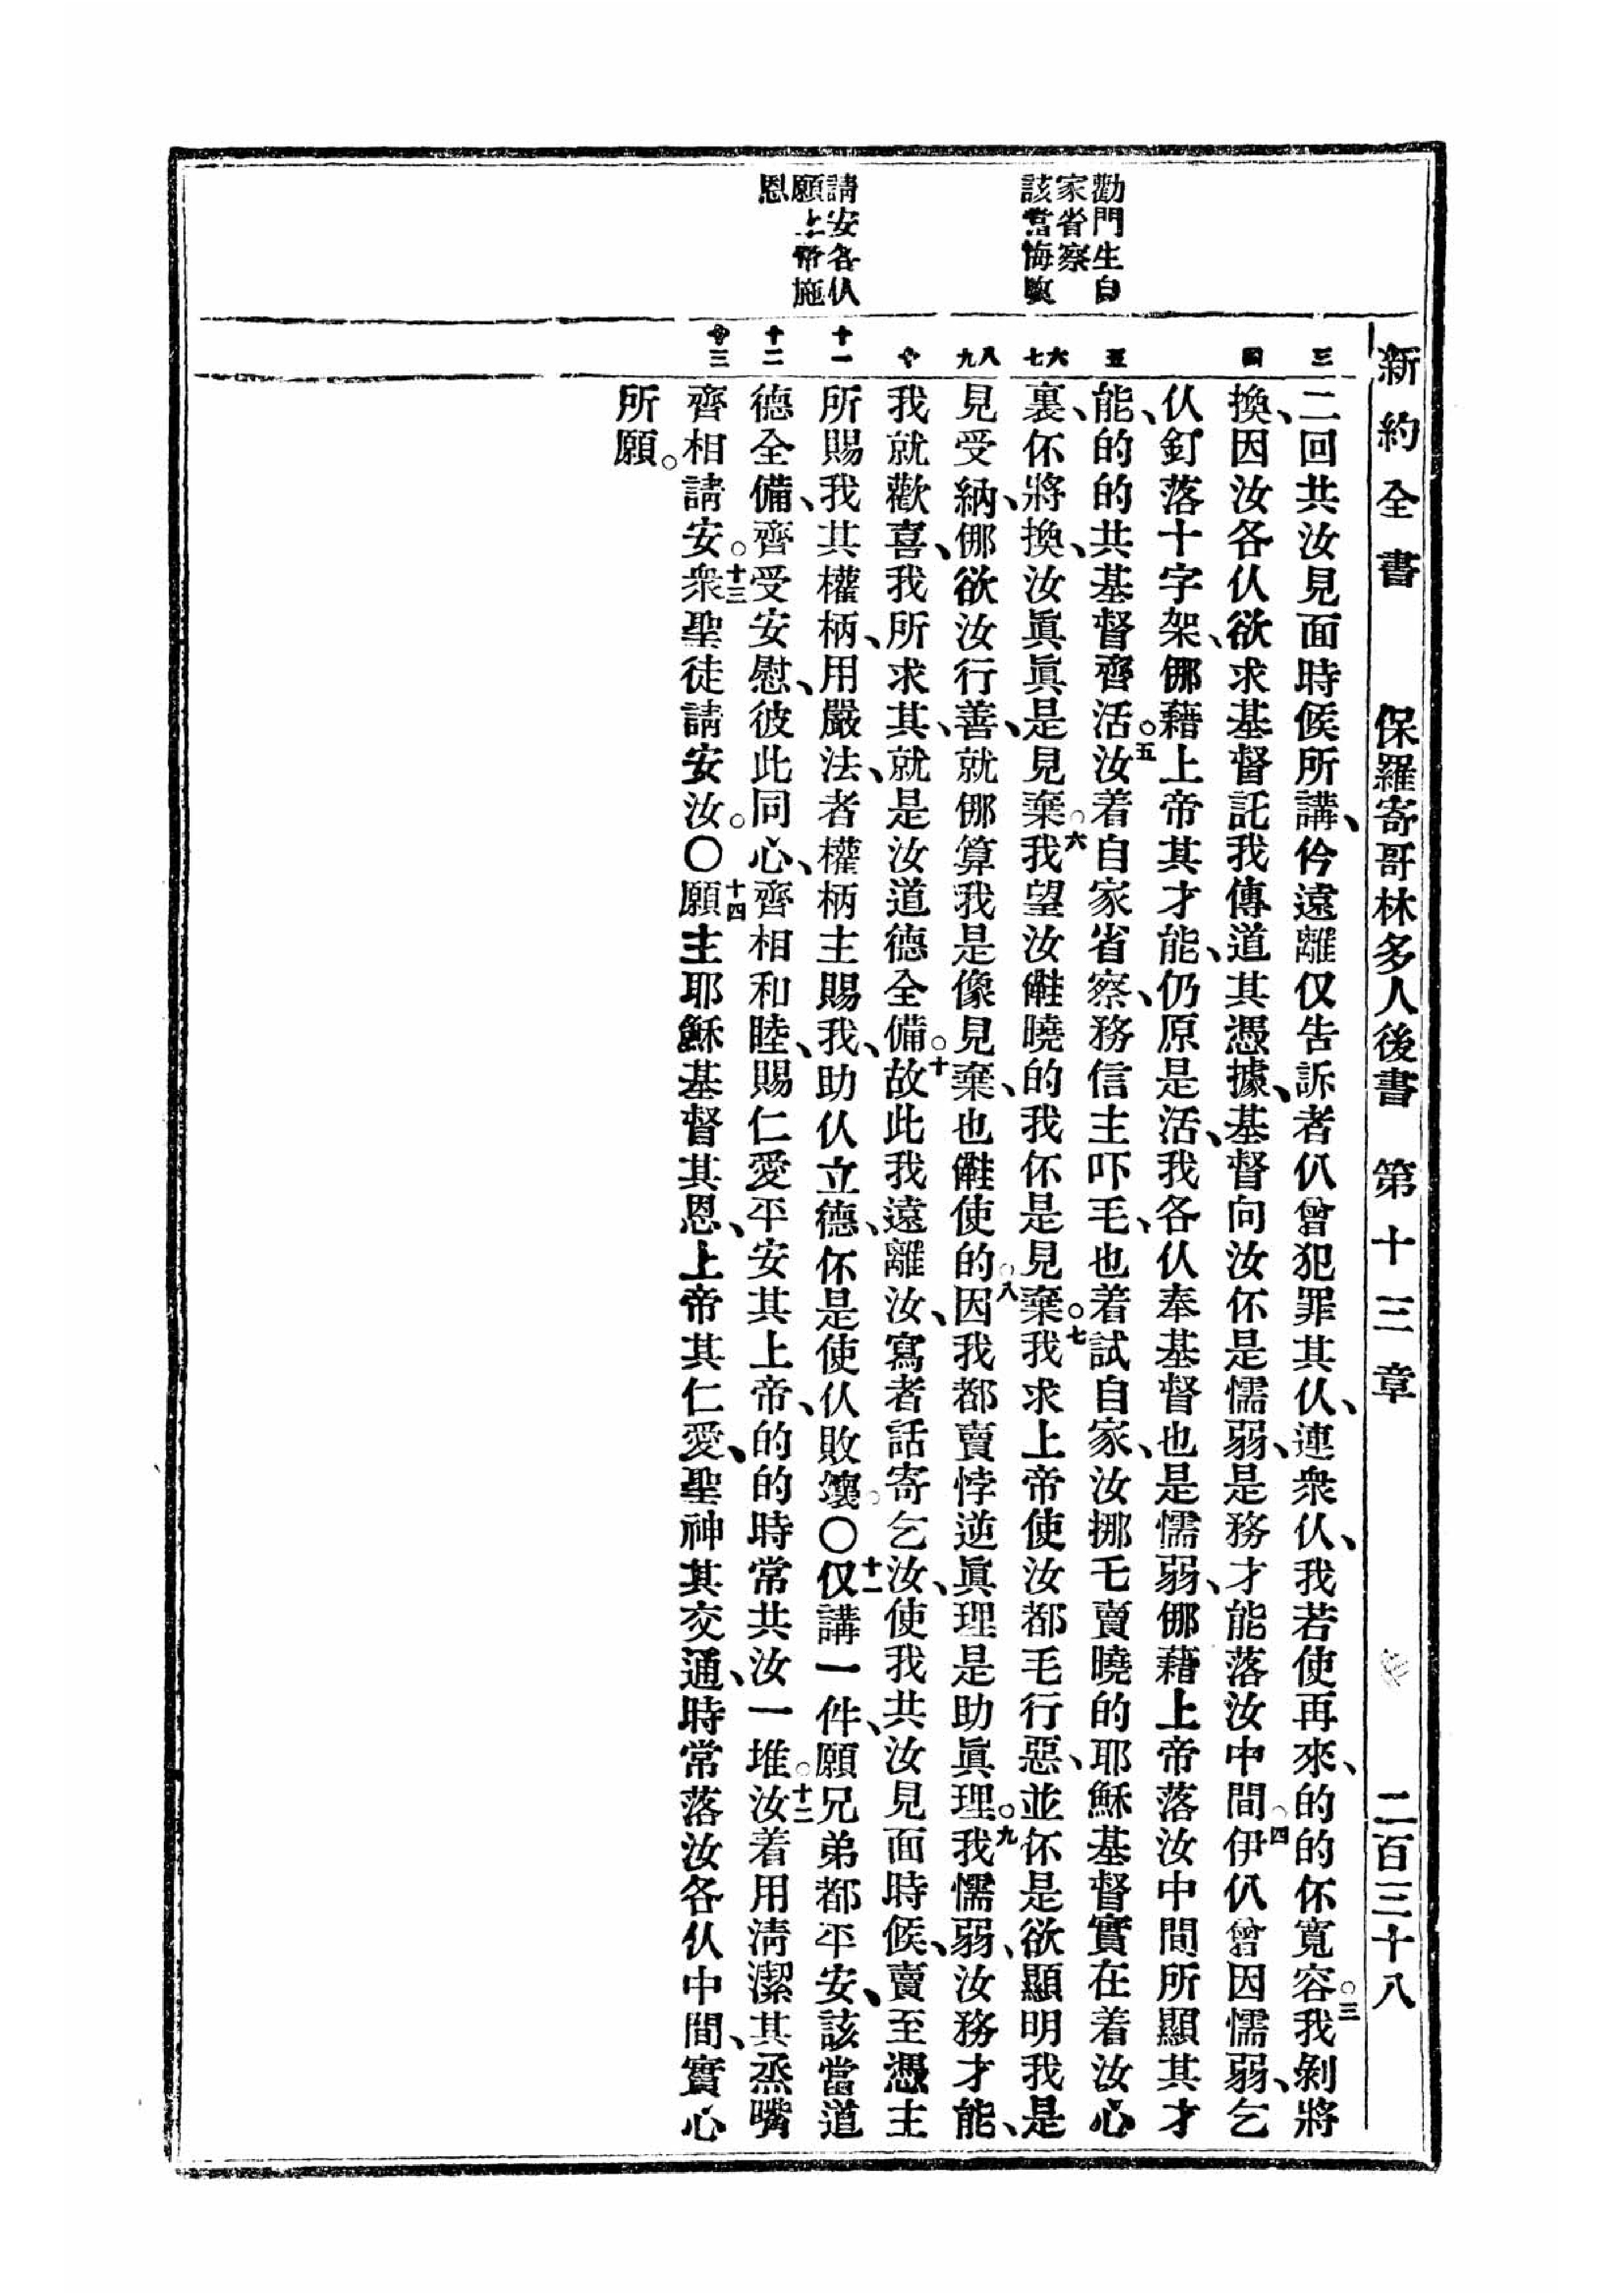 新約全書　保羅寄哥林多人後書　第十三章　二百三十八
勸門生自
家省察
該當悔改
請安各仈
願上帝施
恩
三
四
五
六
七
八
九
十
十一
十二
十三
二回共汝見面時候所講、仱遠離仅告訴者仈曾犯罪其仈、連衆仈、我若使再來、的的伓寬容。三我剝將
換、因汝各仈欲求基督託我傳道其憑據、基督向汝伓是懦弱、是務才能落汝中間。四伊仈曾因懦弱、乞
仈釘落十字架、㑚藉上帝其才能、仍原是活、我各仈奉基督也是懦弱、㑚藉上帝落汝中間所顯其才
能、的的共基督齊活。五汝着自家省察、務信主吓毛、也着試自家、汝挪乇賣曉的耶穌基督實在着汝心
裏、伓將換、汝眞眞是見棄。六我望汝㑼曉的我伓是見棄。七我求上帝使汝都毛行惡、並伓是欲顯明我是
見受納、㑚欲汝行善、就㑚算我是像見棄、也㑼使的。八因我都賣悖逆眞理是助眞理。九我懦弱、汝務才能、
我就歡喜、我所求其、就是汝道德全備。十故此我遠離汝、寫者話寄乞汝、使我共汝見面時候、賣至憑主
所賜我其權柄、用嚴法、者權柄主賜我、助仈立德、伓是使仈敗壞。〇十一仅講一件、願兄弟都平安、該當道
德全備、齊受安慰、彼此同心、齊相和睦、賜仁愛平安其上帝、的的時常共汝一堆。十二汝着用淸潔其烝嘴
齊相請安。十三衆聖徒請安汝。〇十四願主耶穌基督其恩、上帝其仁愛、聖神其交通、時常落汝各仈中間、實心
所願。